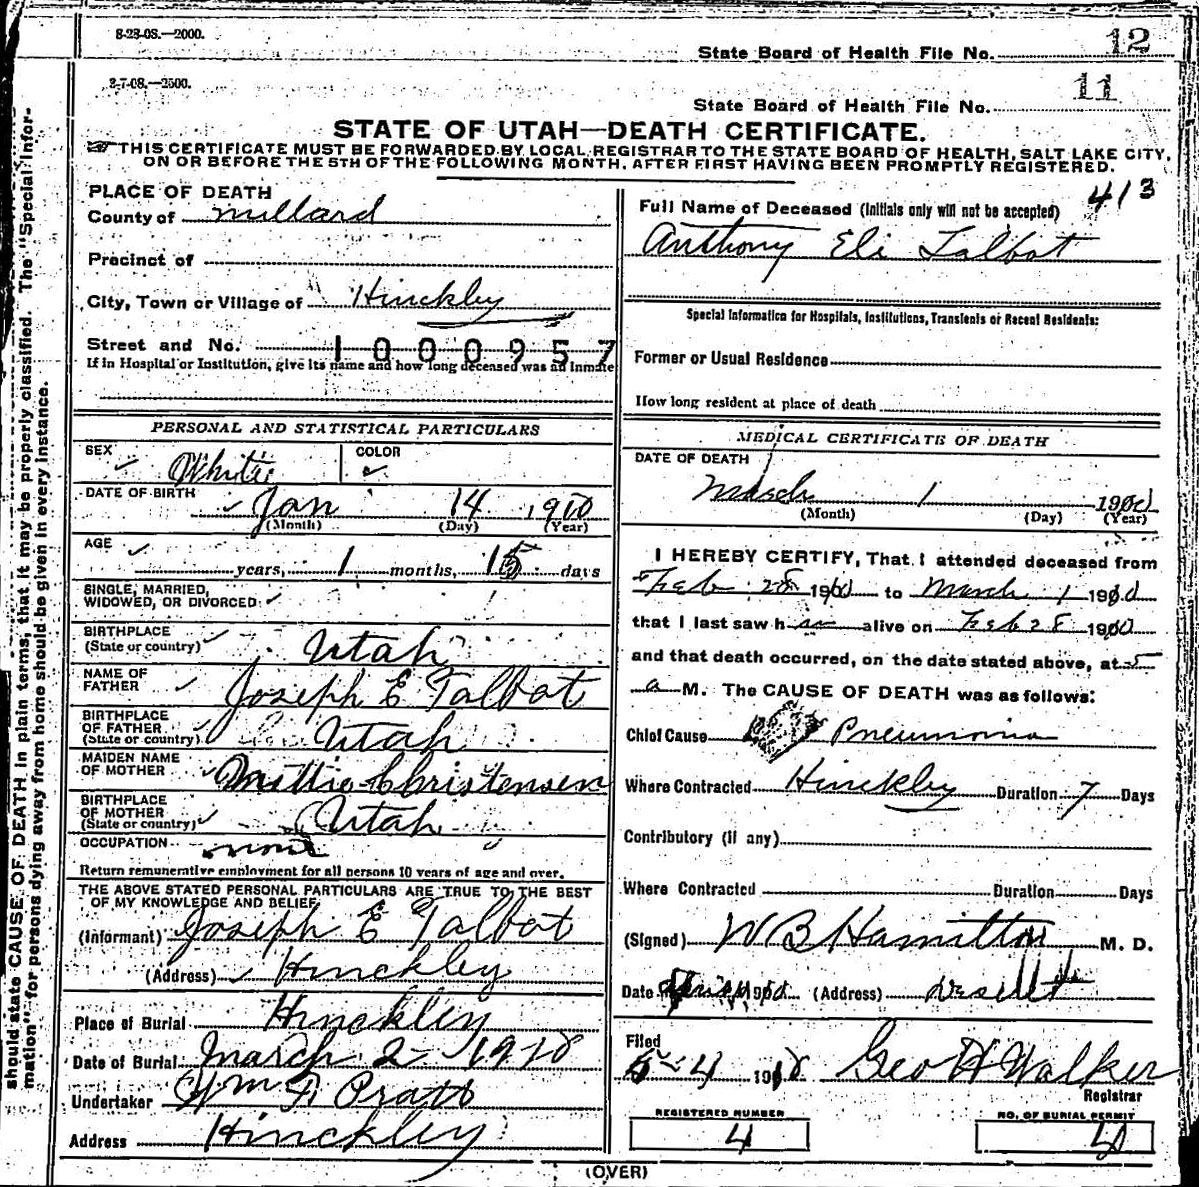 8-23-08.—2000.
State Board of Health File No. 12
2-7-08.—2500.
State Board of Health File No. 11
STATE OF UTAH—DEATH CERTIFICATE.
THIS CERTIFICATE MUST BE FORWARDED BY LOCAL REGISTRAR TO THE STATE BOARD OF HEALTH, SALT LAKE CITY,
ON OR BEFORE THE 5TH OF THE FOLLOWING MONTH, AFTER FIRST HAVING BEEN PROMPTLY REGISTERED.
should state CAUSE OF DEATH in plain terms, that it may be properly classified. The "Special Infor-
mation" for persons dying away from home should be given in every instance.
PLACE OF DEATH
County of Millard
Precinct of
City, Town or Village of Hinckley
Street and No. 1000957
If in Hospital or Institution, give its name and how long deceased was an inmate
PERSONAL AND STATISTICAL PARTICULARS
SEX White COLOR
DATE OF BIRTH Jan 14 1910
(Month) (Day) (Year)
AGE years, 1 months, 15 days
SINGLE, MARRIED,
WIDOWED, OR DIVORCED
BIRTHPLACE
(State or country) Utah
NAME OF
FATHER Joseph E Talbot
BIRTHPLACE
OF FATHER
(State or country) Utah
MAIDEN NAME
OF MOTHER Mittie Christensen
BIRTHPLACE
OF MOTHER
(State or country) Utah
OCCUPATION none
Return remunerative employment for all persons 10 years of age and over.
THE ABOVE STATED PERSONAL PARTICULARS ARE TRUE TO THE BEST
OF MY KNOWLEDGE AND BELIEF
(Informant) Joseph E Talbot
(Address) Hinckley
Place of Burial Hinckley
Date of Burial March 2 1910
Undertaker Wm F Pratt
Address Hinckley
413
Full Name of Deceased (Initials only will not be accepted)
Anthony Eli Talbot
Special Information for Hospitals, Institutions, Transients or Recent Residents:
Former or Usual Residence
How long resident at place of death
MEDICAL CERTIFICATE OF DEATH
DATE OF DEATH
March 1 1910
(Month) (Day) (Year)
I HEREBY CERTIFY, That I attended deceased from
Feb 28 1910 to March 1 1910
that I last saw h alive on Feb 28 1910
and that death occurred, on the date stated above, at 5
a M. The CAUSE OF DEATH was as follows:
Chief Cause Pneumonia
Where Contracted Hinckley Duration 7 Days
Contributory (if any)
Where Contracted Duration Days
(Signed) W B Hamilton M. D.
Date 1910 (Address) Deseret
Filed
5-4 1910 Geo H Walker
Registrar
REGISTERED NUMBER
4
NO. OF BURIAL PERMIT
4
(OVER)